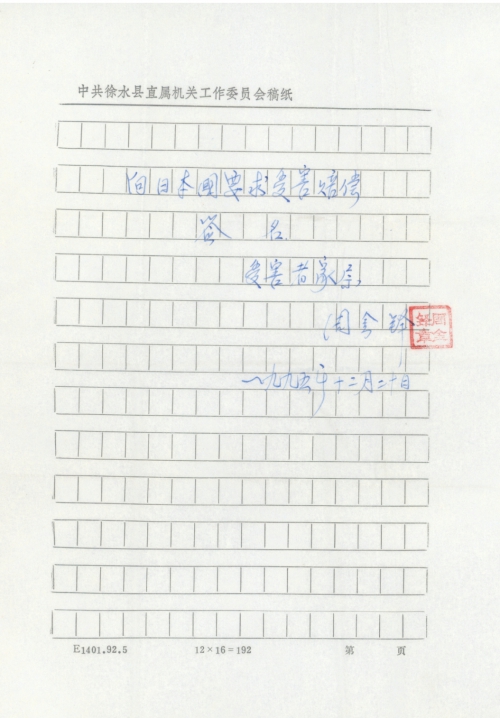 中共徐水县直属机关工作委员会稿纸
向日本国要求受害赔偿
签名
受害者家属
周金铃
一九九五年十二月二十日
E1401.92.5 12×16=192 第 页